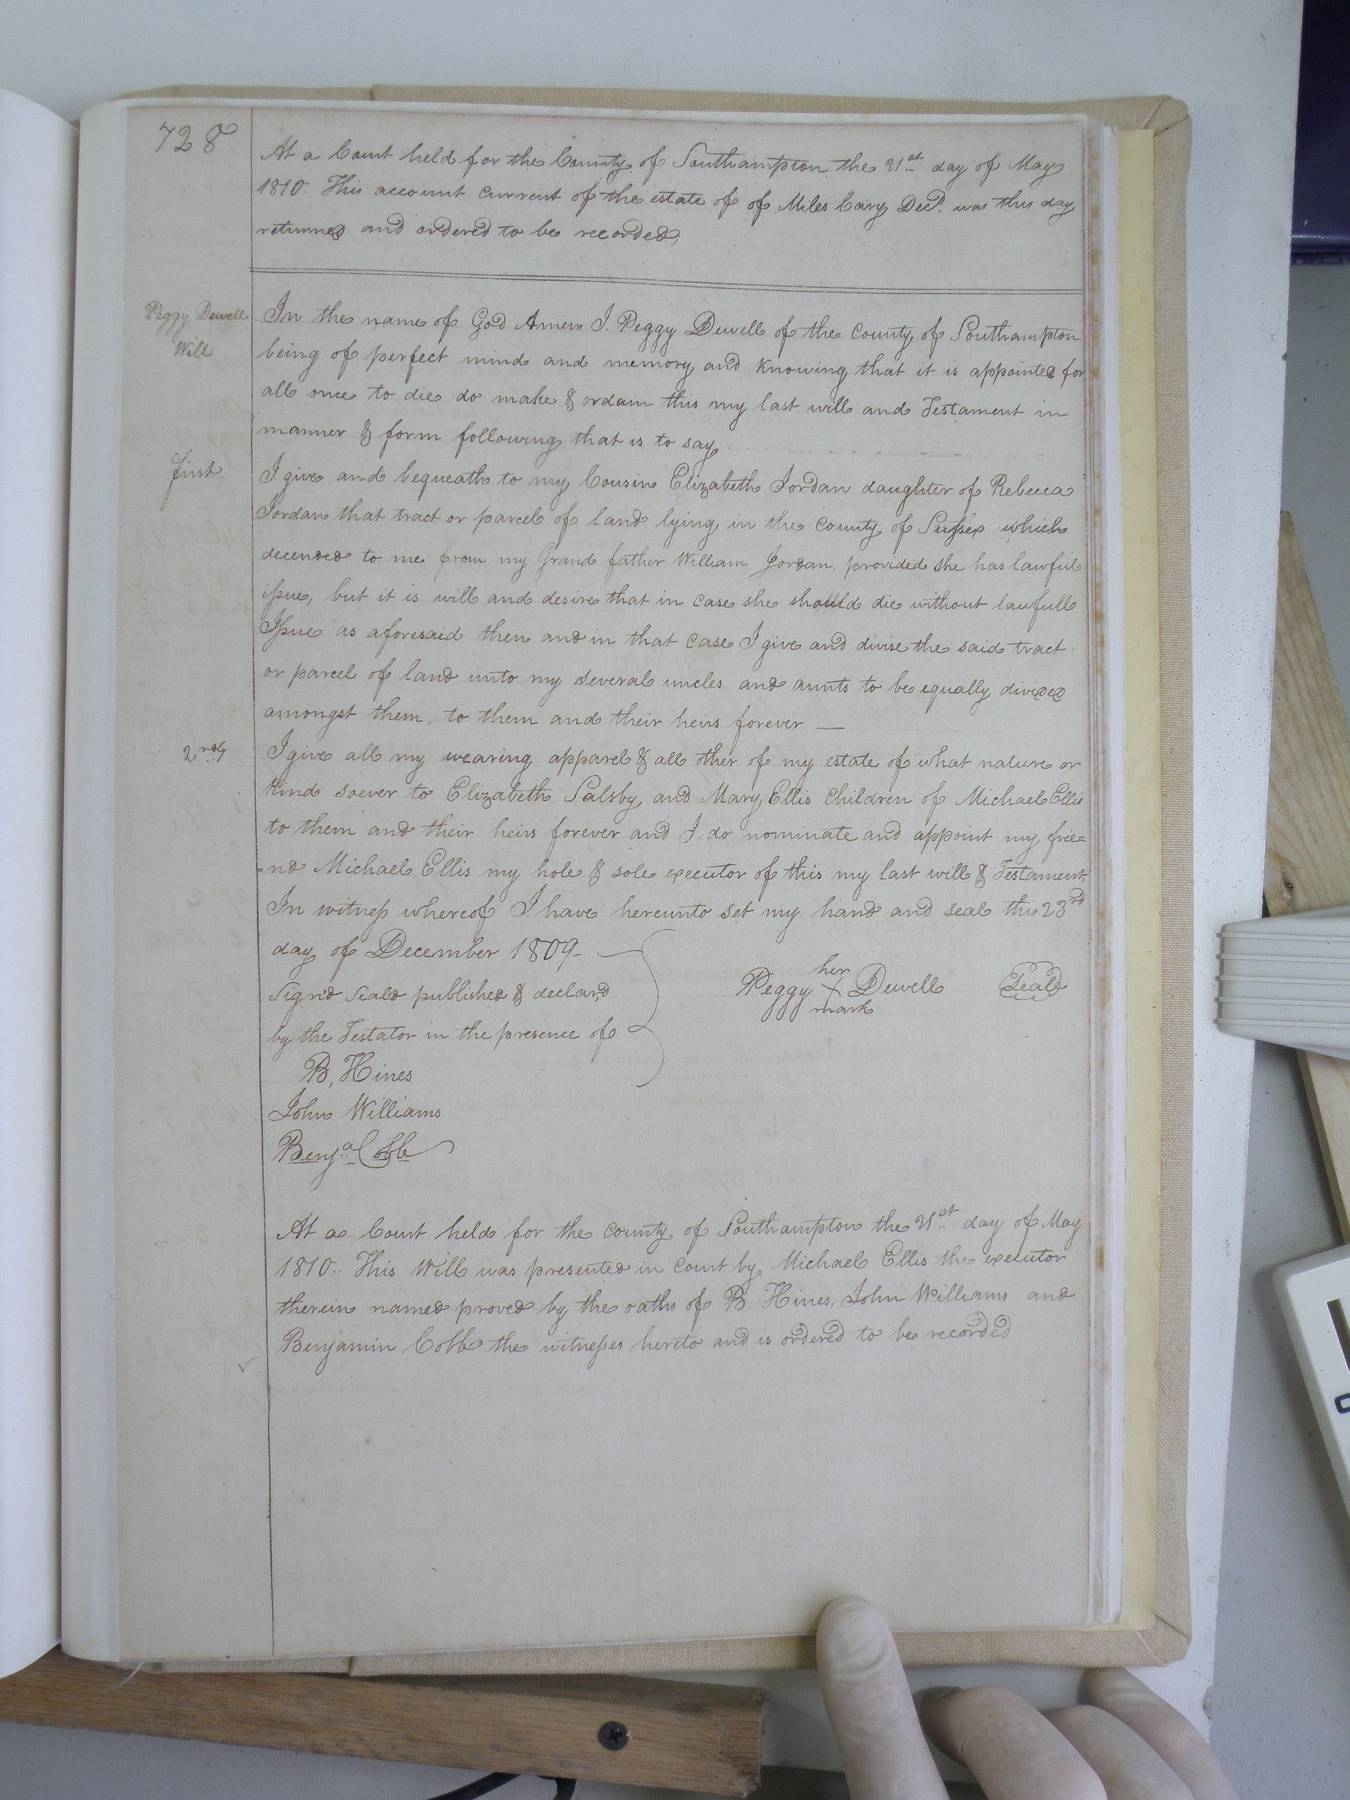 728
At a Court held for the County of Southampton the 21st day of May
1810. This account current of the estate of of Miles Cary Decd. was this day
returned and ordered to be recorded,
Peggy Dewell
Will
In the name of God Amen I. Peggy Dewell of the County of Southampton
being of perfect mind and memory and knowing that it is appointed for
all once to die do make & ordain this my last will and Testament in
manner & form following that is to say.
first
I give and bequeath to my Cousin Elizabeth Jordan daughter of Rebecca
Jordan that tract or parcel of land lying in the County of Sussex which
decended to me from my Grand father William Jordan, provided she has lawful
issue, but it is will and desire that in case she should die without lawfull
Issue as aforesaid then and in that case I give and divise the said tract
or parcel of land unto my several uncles and aunts to be equally divided
amongst them, to them and their heirs forever —
2ndly
I give all my wearing apparel & all other of my estate of what nature or
kind soever to Elizabeth Salsby, and Mary Ellis Children of Michael Ellis
to them and their heirs forever and I do nominate and appoint my frie=
=nd Michael Ellis my hole & sole executor of this my last will & Testament
In witness whereof I have hereunto set my hand and seal this 23rd
day of December 1809-
Sign'd Seald published & decland
by the Testator in the presence of
her
Peggy X Dewell Seald
mark
B, Hines
John Williams
Benja Cobb
At a Court held for the County of Southampton the 21st day of May
1810.. This Will was presented in Court by Michael Ellis the executor
therein named proved by the oaths of B. Hines, John Williams and
Benjamin Cobb the witnesses hereto and is ordered to be recorded